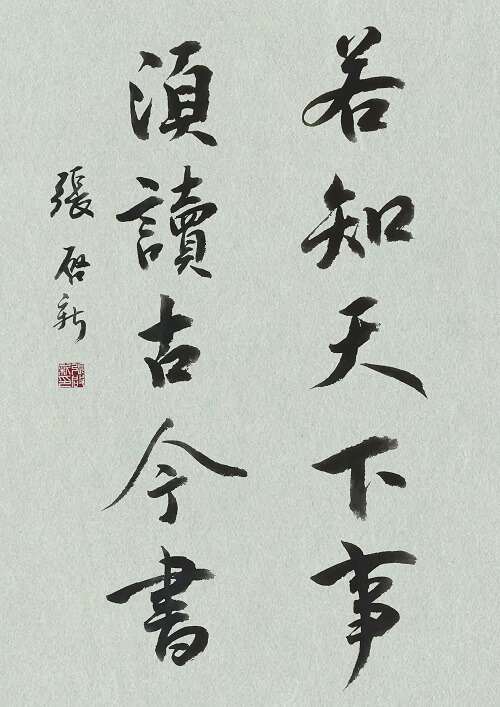 若知天下事
須讀古今書
張啓新